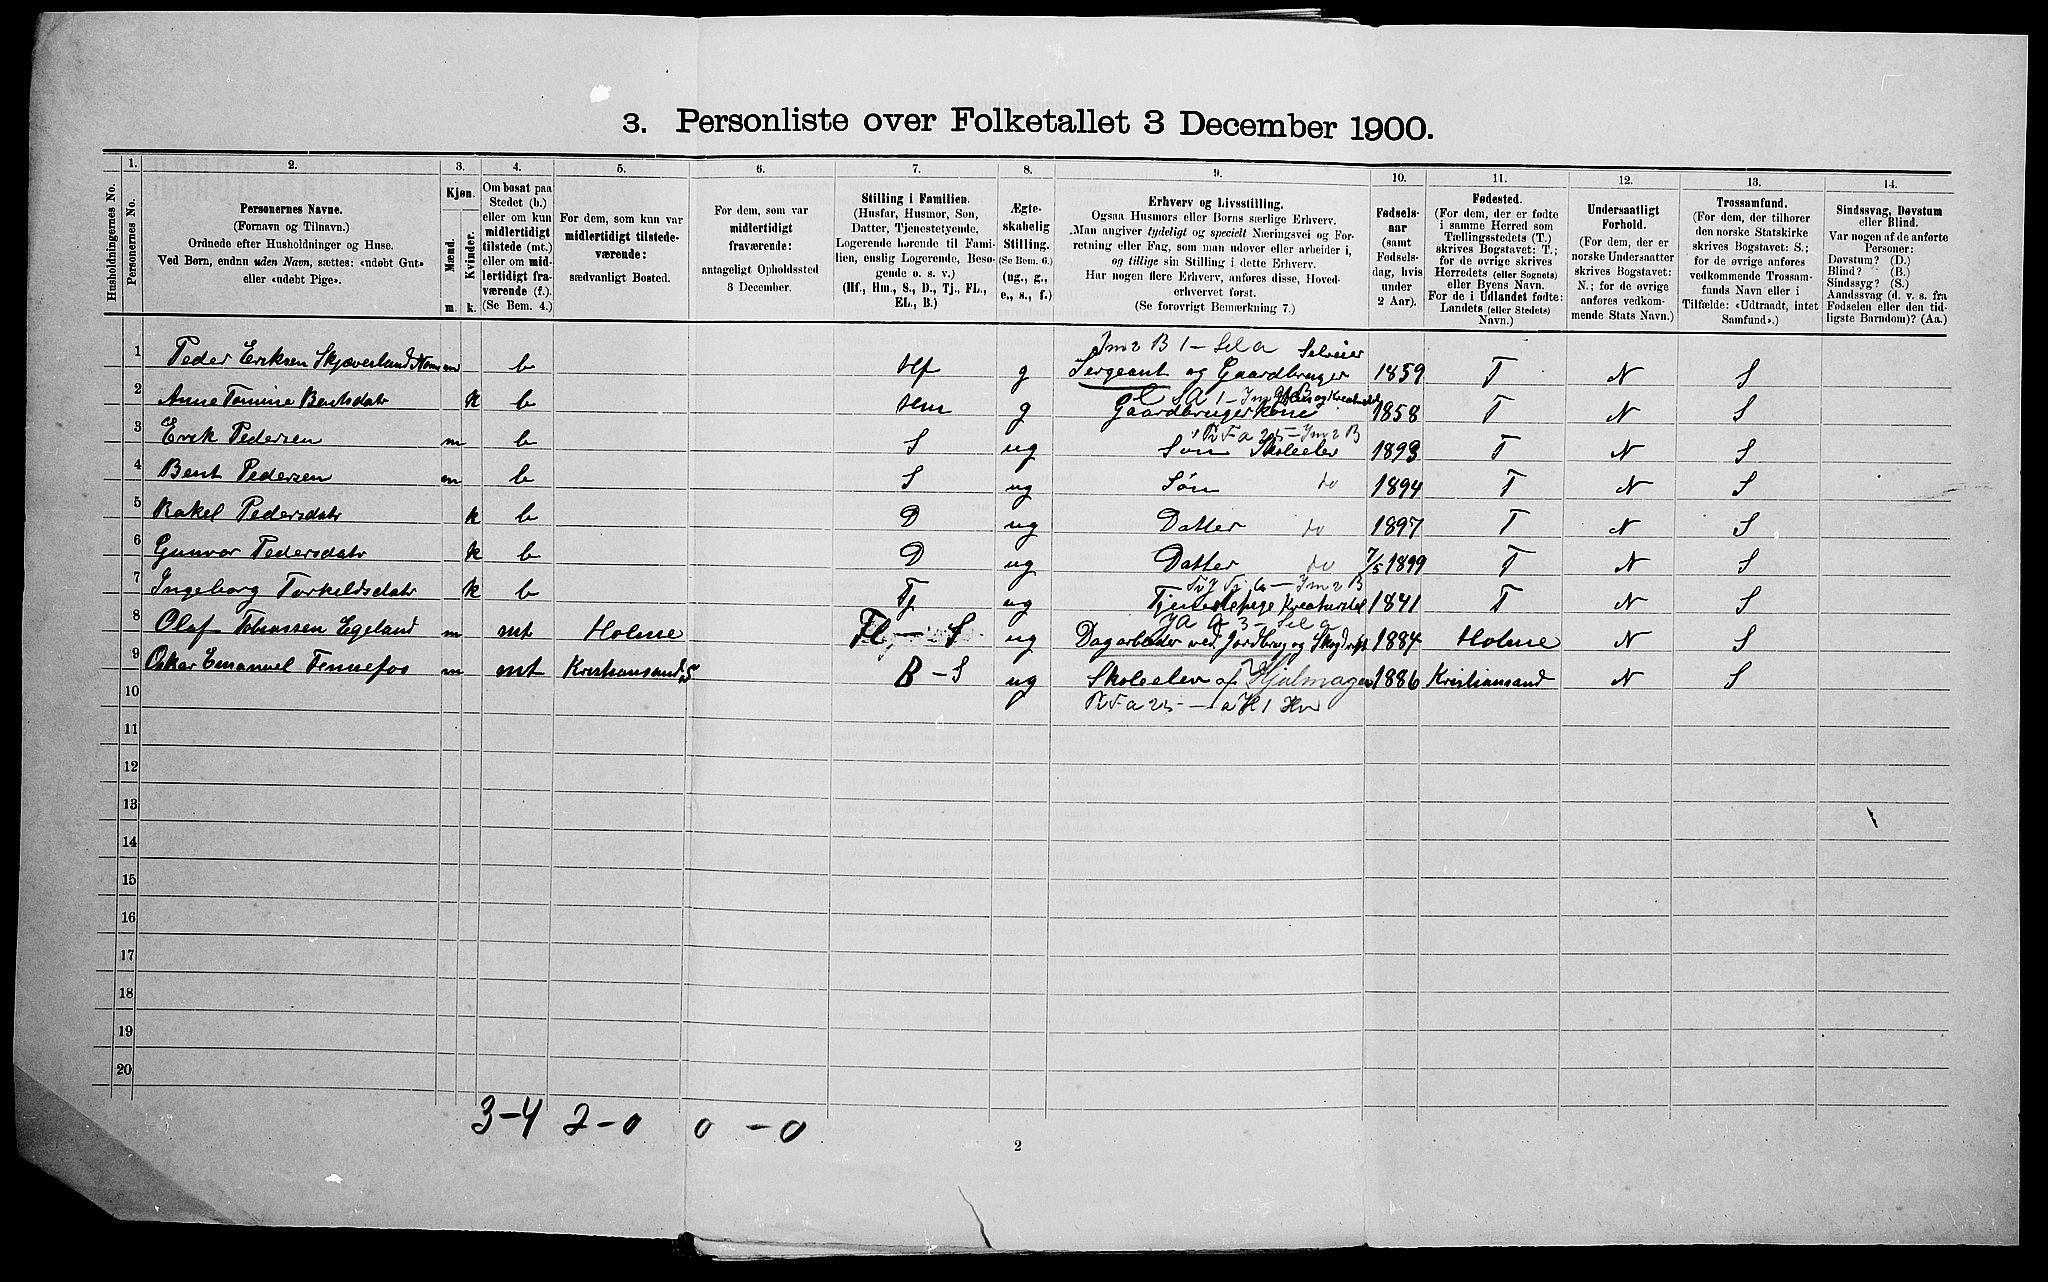 3. Personliste over Folketallet 3 December 1900.
1. 2. 3. 4. 5. 6. 7. 8. 9. 10. 11. 12. 13. 14.
Husholdningernes No.
Personernes No.
Personernes Navne.
(Fornavn og Tilnavn.)
Ordnede efter Husholdninger og Huse.
Ved Børn, endnu uden Navn, sættes: «udøbt Gut»
eller «udøbt Pige».
Kjøn.
Mænd.
Kvinder.
m. k.
Om bosat paa
Stedet (b.)
eller om kun
midlertidigt
tilstede (mt.)
eller om mid-
lertidigt fra-
værende (f.).
(Se Bem. 4.)
For dem, som kun var
midlertidigt tilstede-
værende:
sædvanligt Bosted.
For dem, som var
midlertidigt
fraværende:
antageligt Opholdssted
3 December.
Stilling i Familien.
(Husfar, Husmor, Søn,
Datter, Tjenestetyende,
Logerende hørende til Fami-
lien, enslig Logerende, Besø-
gende o. s. v.)
(Hf., Hm., S., D., Tj., FL.,
EL., B.)
Ægte-
skabelig
Stilling.
(Se Bem. 6.)
(ug., g.,
e., s., f.)
Erhverv og Livsstilling.
Ogsaa Husmors eller Børns særlige Erhverv.
Man angiver tydeligt og specielt Næringsvei og For-
retning eller Fag, som man udøver eller arbeider i,
og tillige sin Stilling i dette Erhverv.
Har nogen flere Erhverv, anføres disse, Hoved-
erhvervet først.
(Se forøvrigt Bemærkning 7.)
Fødsels-
aar
(samt
Fødsels-
dag, hvis
under
2 Aar).
Fødested.
(For dem, der er fødte
i samme Herred som
Tællingsstedets (T.)
skrives Bogstavet: T.;
for de øvrige skrives
Herredets (eller Sognets)
eller Byens Navn.
For de i Udlandet fødte:
Landets (eller Stedets)
Navn.)
Undersaatligt
Forhold.
(For dem, der er
norske Undersaatter
skrives Bogstavet:
N.; for de øvrige
anføres vedkom-
mende Stats Navn.)
Trossamfund.
(For dem, der tilhører
den norske Statskirke
skrives Bogstavet: S.;
for de øvrige anføres
vedkommende Trossam-
funds Navn eller i
Tilfælde: «Udtraadt, intet
Samfund».)
Sindssvag, Døvstum
eller Blind.
Var nogen af de anførte
Personer:
Døvstum? (D.)
Blind? (B.)
Sindssyg? (S.)
Aandssvag (d. v. s. fra
Fødselen eller den tid-
ligste Barndom)? (Aa.)
Im 2 B 1 – Sela Selveier
1 Peder Eriksen Skjæverland m b Hf g Sergeant og Gaardbruger 1859 T N S
2 Anne Tomine Bentsdatr k b Hm g Gaardbrugerkone 1858 T N S
Fa 25 – Im 2 B
3 Erik Pedersen m b S ug Søn Skoleelev 1893 T N S
4 Bent Pedersen m b S ug Søn do 1894 T N S
5 Rakel Pedersdatr k b D ug Datter do 1897 T N S
6 Gunvor Pedersdatr k b D ug Datter do 7/5 1899 T N S
Im 2 B
7 Ingeborg Torkeldsdatr k b Tj ug Tjenestepige Kreaturstel 1841 T N S
8 Olaf Tobiassen Egeland m mt Holme Fl – S ug Dagarbeider ved Jordbrug og Skogdrift 1884 Holme N S
9 Oskar Emanuel Tennefos m mt Kristiansand S B – S ug Skoleelev af Hjulmager 1886 Kristiansand N S
10
11
12
13
14
15
16
17
18
19
20
3–4 2–0 0–0
2